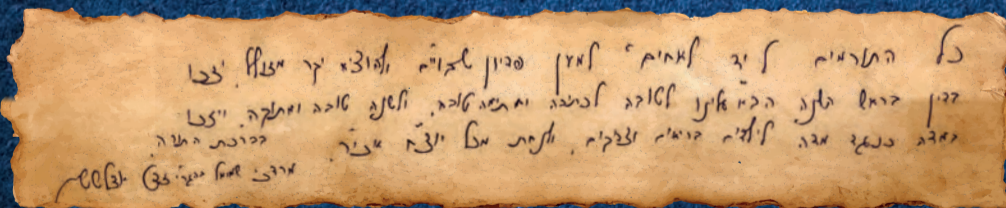 כל התורמים ל״יד לאחים״ למען פדיון שבויים ולהוציא יקר מזולל, יזכו
בדין בראש השנה הבא אלינו לטובה לכתיבה וחתימה טובה, ולשנה טובה ומתוקה, ויזכו
במדה כנגד מדה לילדים בריאים וצדקים, ולנחת מכל יוצ״ח אכי״ר. בברכת התורה,
מרדכי שמואל